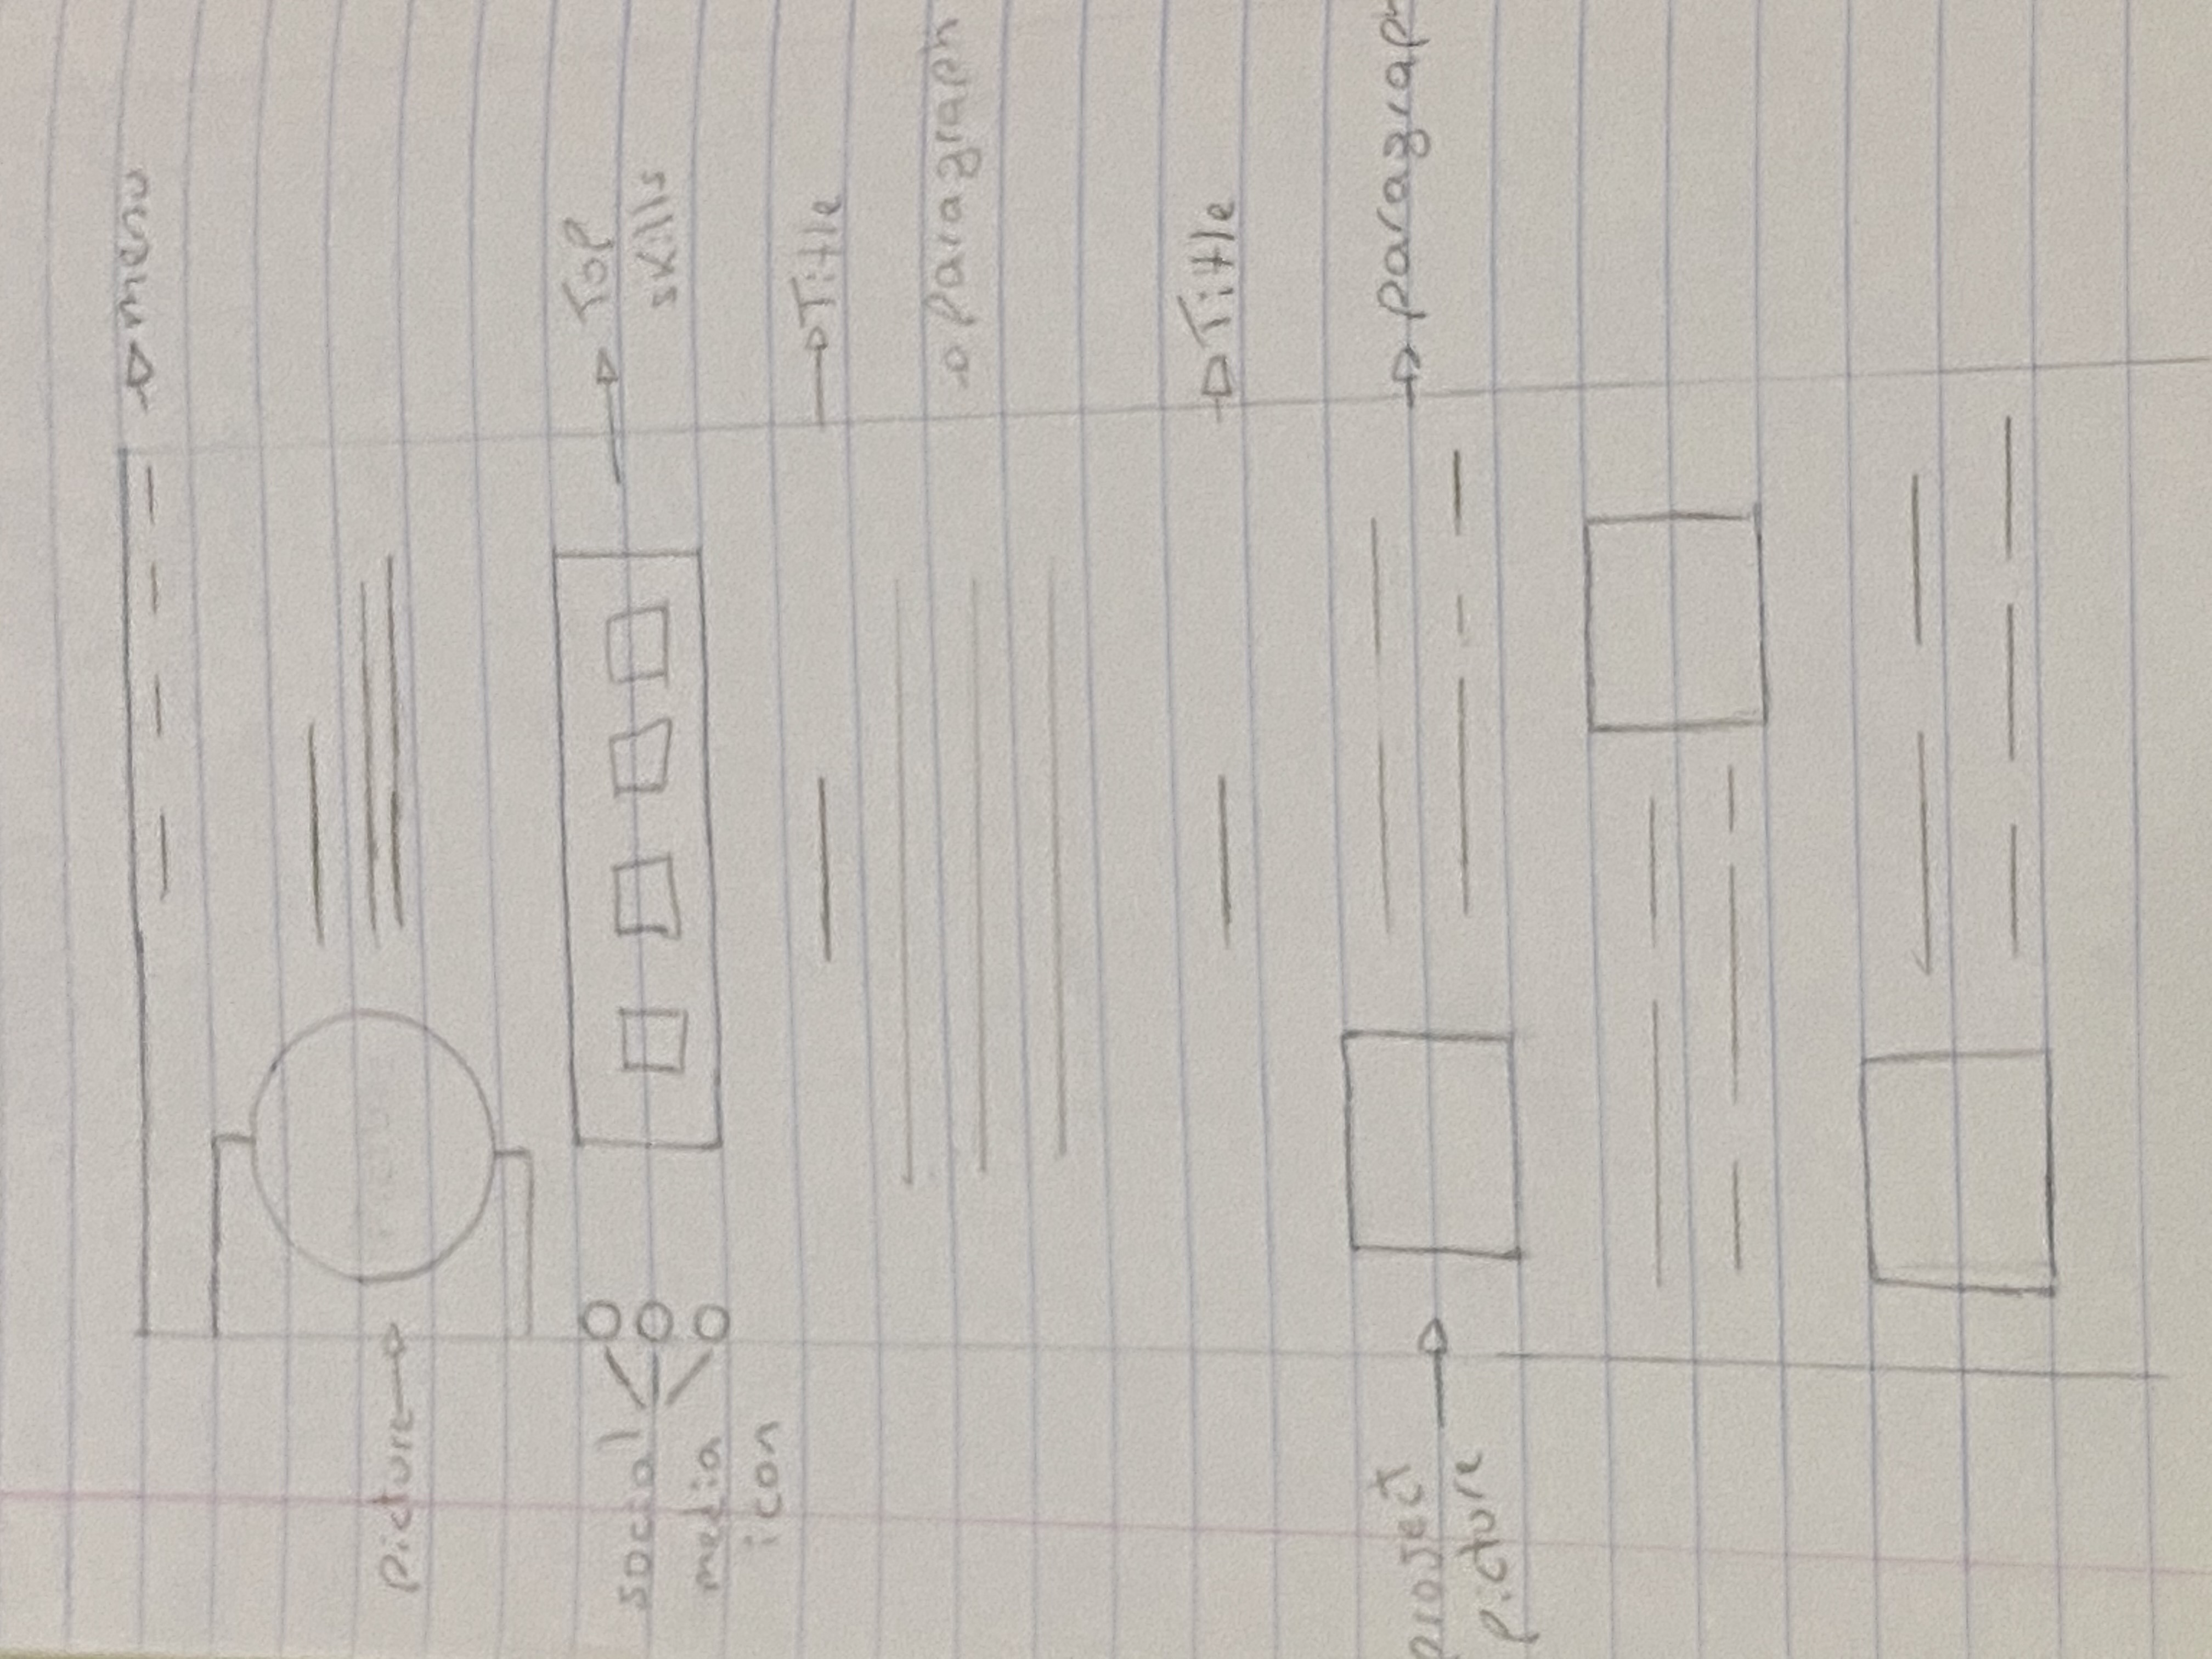 menu
picture
social
media
icon
Top
skills
Title
paragraph
Title
project
picture
paragraph